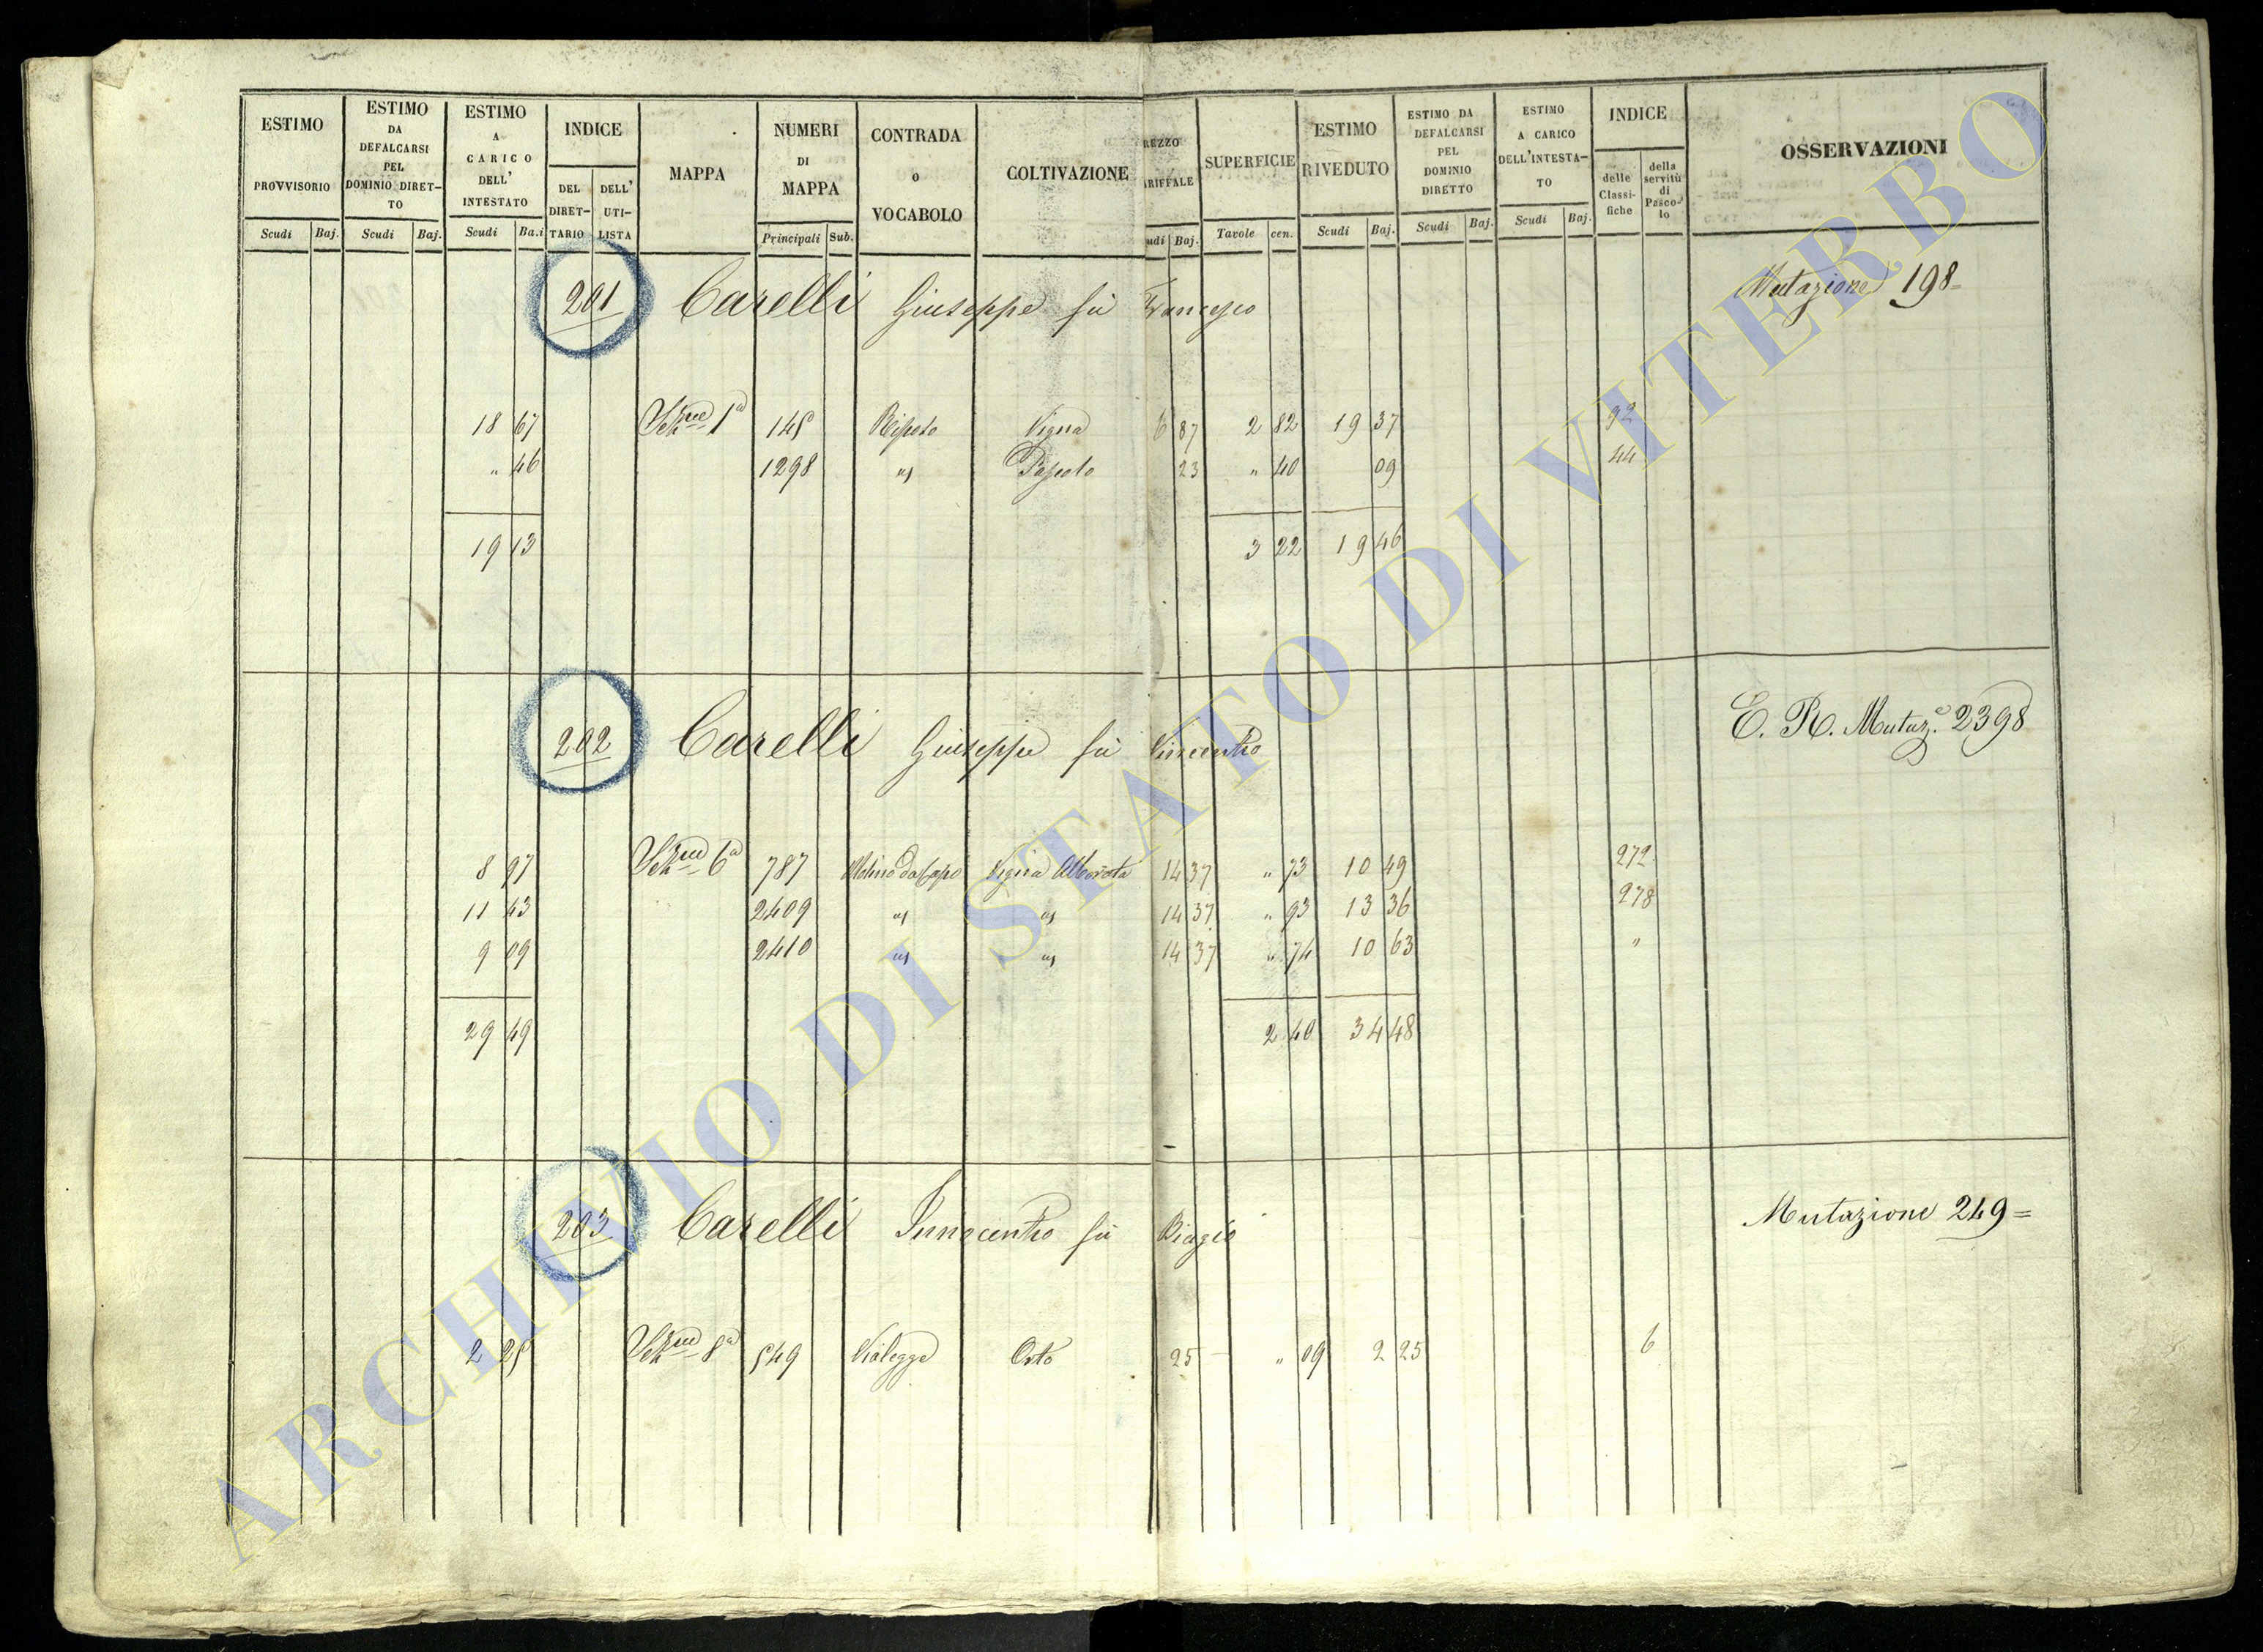 ESTIMO PROVVISORIO
ESTIMO DA DEFALCARSI PEL DOMINIO DIRET-TO
ESTIMO A CARICO DELL' INTESTATO
INDICE
DEL DIRET-TARIO
DELL' UTI-LISTA
MAPPA
NUMERI DI MAPPA
CONTRADA O VOCABOLO
COLTIVAZIONE
REZZO ARIFFALE
SUPERFICIE
ESTIMO RIVEDUTO
ESTIMO DA DEFALCARSI PEL DOMINIO DIRETTO
ESTIMO A CARICO DELL'INTESTA-TO
INDICE
delle Classi-fiche
della servitù di Pasco-lo
OSSERVAZIONI
Scudi Baj. Scudi Baj. Scudi Ba.i Principali Sub. udi Baj. Tavole cen. Scudi Baj. Scudi Baj. Scudi Baj.
201 Carelli Giuseppe fù Francesco Mutazione 198
18 67 Sezne 1a 145 Rispolo Vigna 6 87 2 82 19 37 92
" 46 1298 as Pascolo 23 " 40 09 44
19 13 3 22 19 46
202 Carelli Giuseppe fù Vincenzo E. R. Mutaz.e 2398
8 97 Sezne 6a 787 Molino da Capo Vigna Alborata 14 37 " 73 10 49 272
11 43 2409 as as 14 37 " 93 13 36 278
9 09 2410 as as 14 37 " 74 10 63 "
29 49 2 40 34 48
203 Carelli Innocenzo fù Biagio Mutazione 249=
2 25 Sezne 8a 549 Vialegge Orto 25 " 09 2 25 6
ARCHIVIO DI STATO DI VITERBO